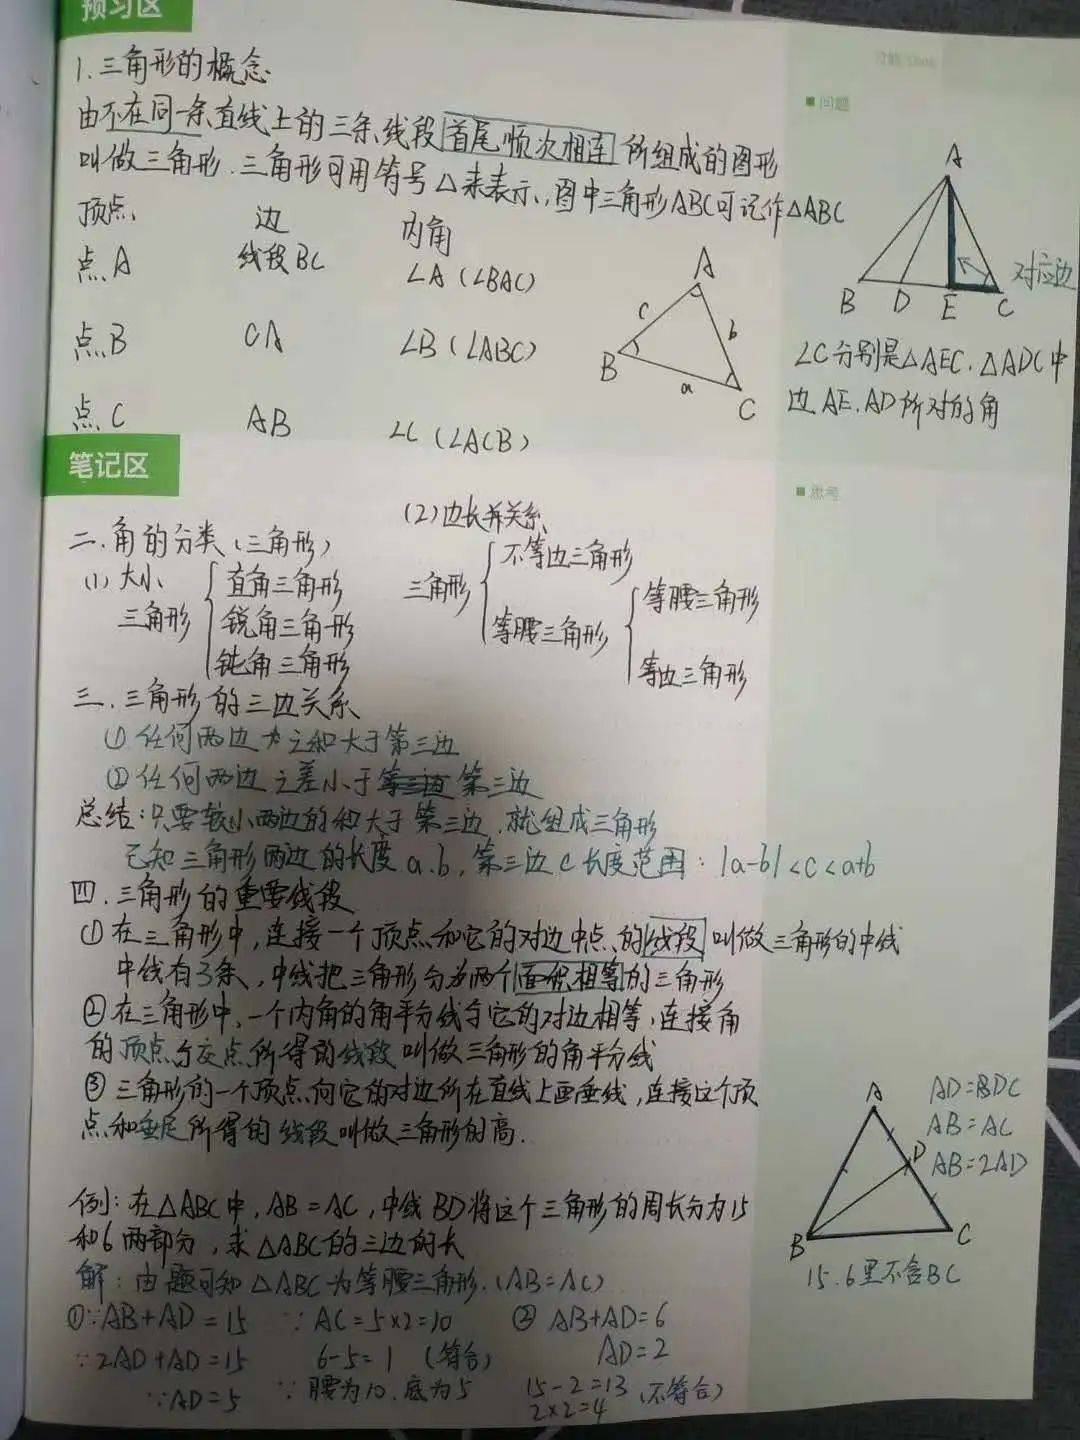 预习区
1.三角形的概念
由不在同一条直线上的三条线段首尾顺次相连所组成的图形
叫做三角形.三角形可用符号△来表示,图中三角形ABC可记作△ABC
顶点 边 内角
点A 线段BC ∠A(∠BAC)
点B CA ∠B(∠ABC)
点C AB ∠C(∠ACB)
A
c b
B a C
问题
A
B D E C 对应边
∠C分别是△AEC.△ADC中
边AE.AD所对的角
笔记区
思考
二.角的分类(三角形)
(1)大小
三角形
直角三角形
锐角三角形
钝角三角形
(2)边长关系
三角形
不等边三角形
等腰三角形
等腰三角形
等边三角形
三.三角形的三边关系
①任何两边之和大于第三边
②任何两边之差小于第三边
总结:只要较小两边的和大于第三边.就组成三角形
已知三角形两边的长度a.b,第三边c长度范围:|a-b|<c<a+b
四.三角形的重要线段
①在三角形中,连接一个顶点和它的对边中点的线段叫做三角形的中线
中线有3条,中线把三角形分为两个面积相等的三角形
②在三角形中,一个内角的角平分线与它的对边相等,连接角
的顶点与交点所得的线段叫做三角形的角平分线
③三角形的一个顶点向它的对边所在直线上画垂线,连接这个顶
点和垂足所得的线段叫做三角形的高.
例:在△ABC中,AB=AC,中线BD将这个三角形的周长分为15
和6两部分,求△ABC的三边的长
解:由题可知△ABC为等腰三角形.(AB=AC)
①∵AB+AD=15 ∵AC=5×2=10 ②AB+AD=6
∵2AD+AD=15 6-5=1 (符合) AD=2
∵AD=5 ∵腰为10.底为5 15-2=13 (不符合)
2×2=4
A AD=DC
AB=AC
D AB=2AD
B C
15.6里不含BC